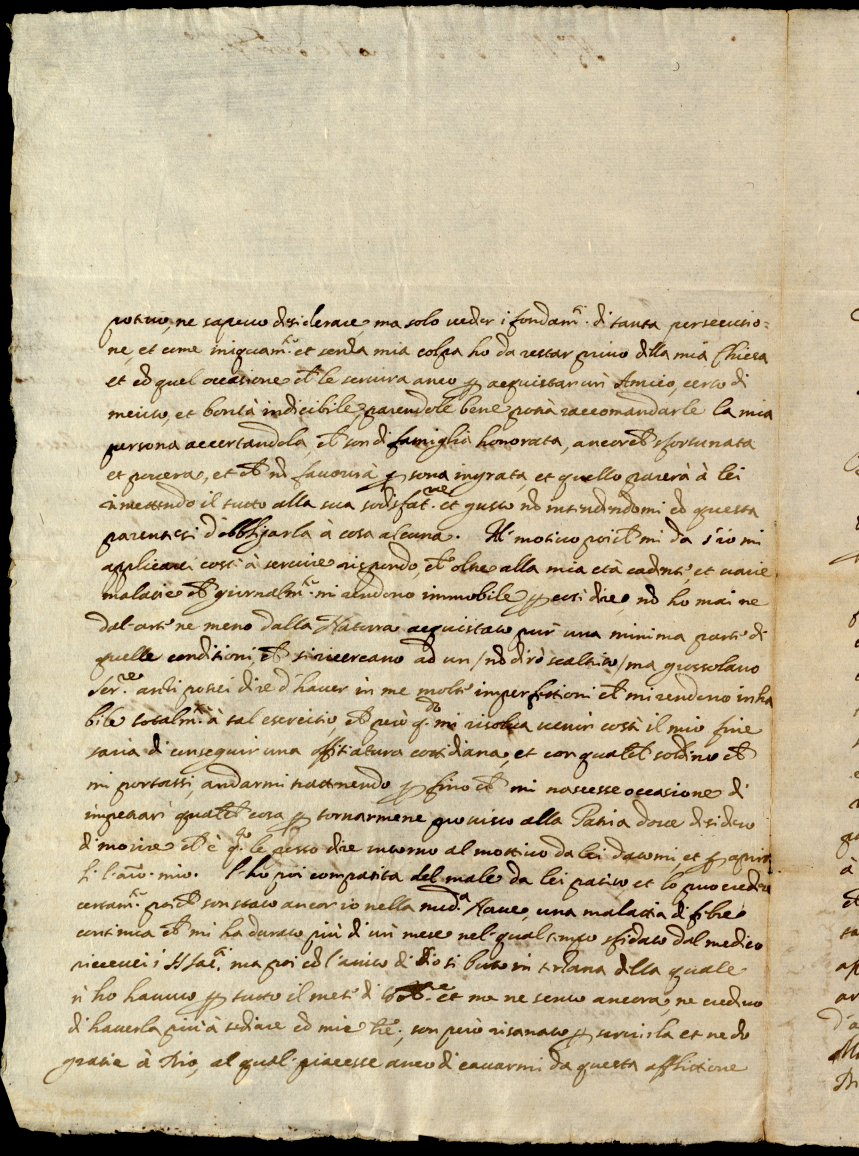 potevo, ne sapevo desiderare, ma solo veder i fondam.ti di tanta persecutio=
ne, et come iniquam.te et senza mia colpa ho da restar privo della mia Chiesa
et con quel occasione che le servira anco per acquistar un Amico, certo di
merito, et bontà indicibile, parendole bene potrà raccomandarle la mia
persona accertandola, che son di famiglia honorata, ancorche sfortunata
et povera, et che non favorirà persona ingrata et quello parerà à lei
rimettendo il tutto alla sua sodisfat.ne et gusto non intendendomi con questa
parentesi d'obbligarla à cosa alcuna. Al motivo poi che mi da s'io mi
applicarei costì à servire rispondo, che oltre alla mia età cadente, et varie
malatie che giornalm.te mi rendono immobile per così dire, non ho mai ne
dal-arte ne meno dalla Natura acquistato pur una minima parte di
quelle conditioni, che si ricercano ad un /non dirò scaltrito/ ma grossolano
Ser.re anzi potrei dire d'haver in me molte imperfettioni che mi rendono inha
bile totalm.te à tal esercitio, et però q.do mi risolva venir costà il mio fine
saria di conseguir una offitiatura cottidiana, et con qualche soldino che
mi portassi, andarmi trattenendo per fino che mi nascesse occasione di
impetrar qualche cosa per tornarmene provisto alla Patria dove desidero
di morire che è q.to le posso dire intorno al mottivo da lei datomi, et
l'ho poi compatita del male da lei patito et lo può credere
certam.te poiche son stato ancor io nella med.a Nave, una malatia di febre
continua che mi ha durato più di un mese nel qual tempo sfidato dal medico
ricevei i SS.ti ma poi con l'aiuto di Dio si butò in terzana della quale
n'ho havuto per tutto il mese di et me ne sento ancora, ne credevo
di haverla più à vedere con mie son però risanato per servirla et ne do
gratie à Dio, al qual piacesse anco di cavarmi da questa afflittione